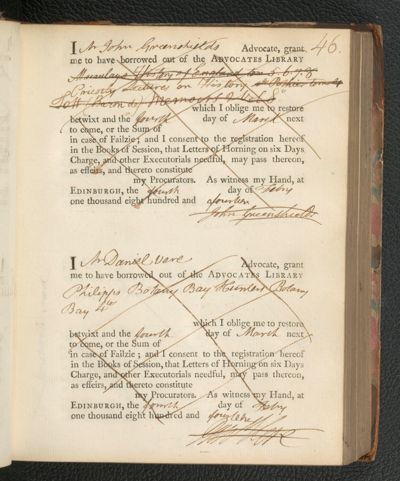 46.
I Mr John Greenshields Advocate, grant
me to have borrowed out of the ADVOCATES LIBRARY
Macaulay's History of England tom 5. 6. 7. 8.
Priestly Lectures on History
Tott (Baron de) Memoirs 2 Vols
which I oblige me to restore
betwixt and the fourth day of March next
to come, or the Sum of
in case of Failzie; and I consent to the registration hereof
in the Books of Session, that Letters of Horning on six Days
Charge, and other Executorials needful, may pass thereon,
as effeirs, and thereto constitute
my Procurators. As witness my Hand, at
EDINBURGH, the fourth day of Feby
one thousand eight hundred and fourteen
John Greenshields
I Mr Daniel Vere Advocate, grant
me to have borrowed out of the ADVOCATES LIBRARY
Philipps Botany Bay Hunters Botany
Bay 4to
which I oblige me to restore
betwixt and the fourth day of March next
to come, or the Sum of
in case of Failzie; and I consent to the registration hereof
in the Books of Session, that Letters of Horning on six Days
Charge, and other Executorials needful, may pass thereon,
as effeirs, and thereto constitute
my Procurators. As witness my Hand, at
EDINBURGH, the fourth day of Feby
one thousand eight hundred and fourteen